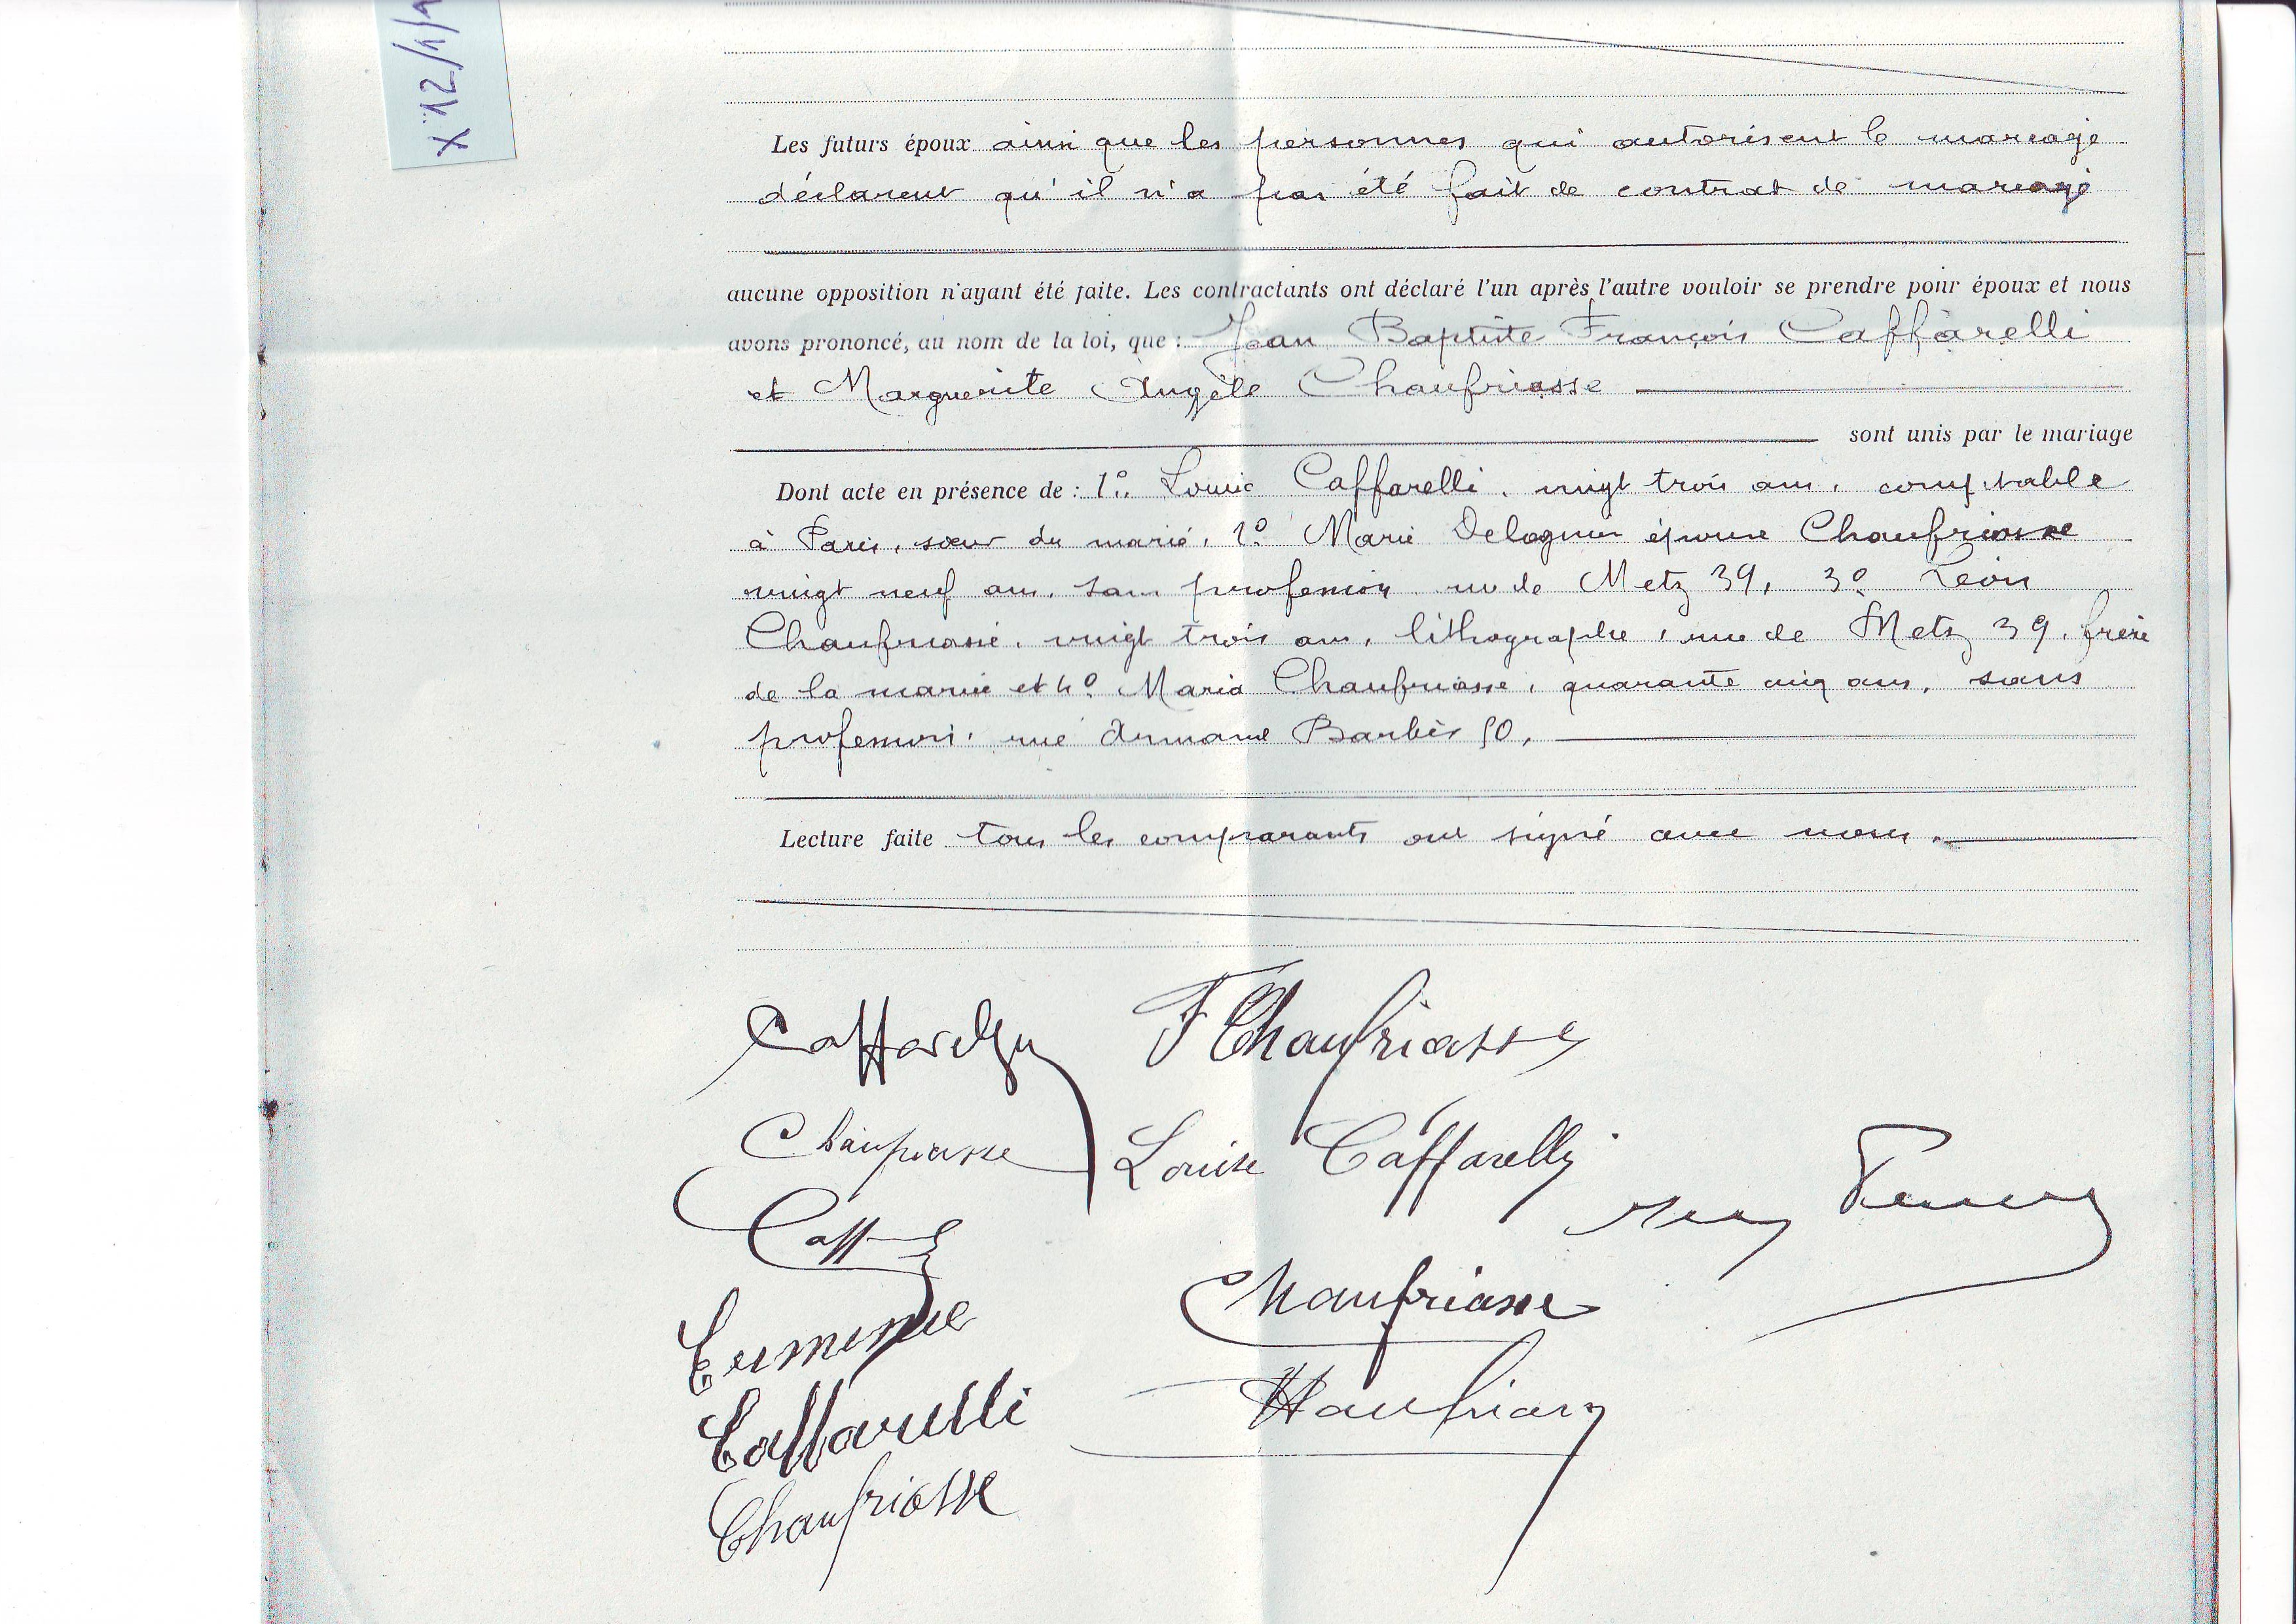 X 12/4/
Les futurs époux ainsi que les personnes qui autorisent le mariage
déclarent qu'il n'a pas été fait de contrat de mariage
aucune opposition n'ayant été faite. Les contractants ont déclaré l'un après l'autre vouloir se prendre pour époux et nous
avons prononcé, au nom de la loi, que : Jean Baptiste François Caffarelli
et Marguerite Angèle Chaufriasse
sont unis par le mariage
Dont acte en présence de : 1º. Louise Caffarelli, vingt trois ans, comptable
à Paris, sœur du marié, 2º. Marie épouse Chaufriasse
vingt neuf ans, sans profession rue de Metz 39, 3º. Léon
Chaufriasse, vingt trois ans, lithographe, rue de Metz 39, frère
de la mariée et 4º. Maria Chaufriasse, quarante cinq ans, sans
profession, rue Armand Barbès 50,
Lecture faite tous les comparants ont signé avec nous.
Caffarelli F Chaufriasse
Chaufriasse Louise Caffarelli
Caff
Chaufriasse
Caffarelli
Chaufriasse